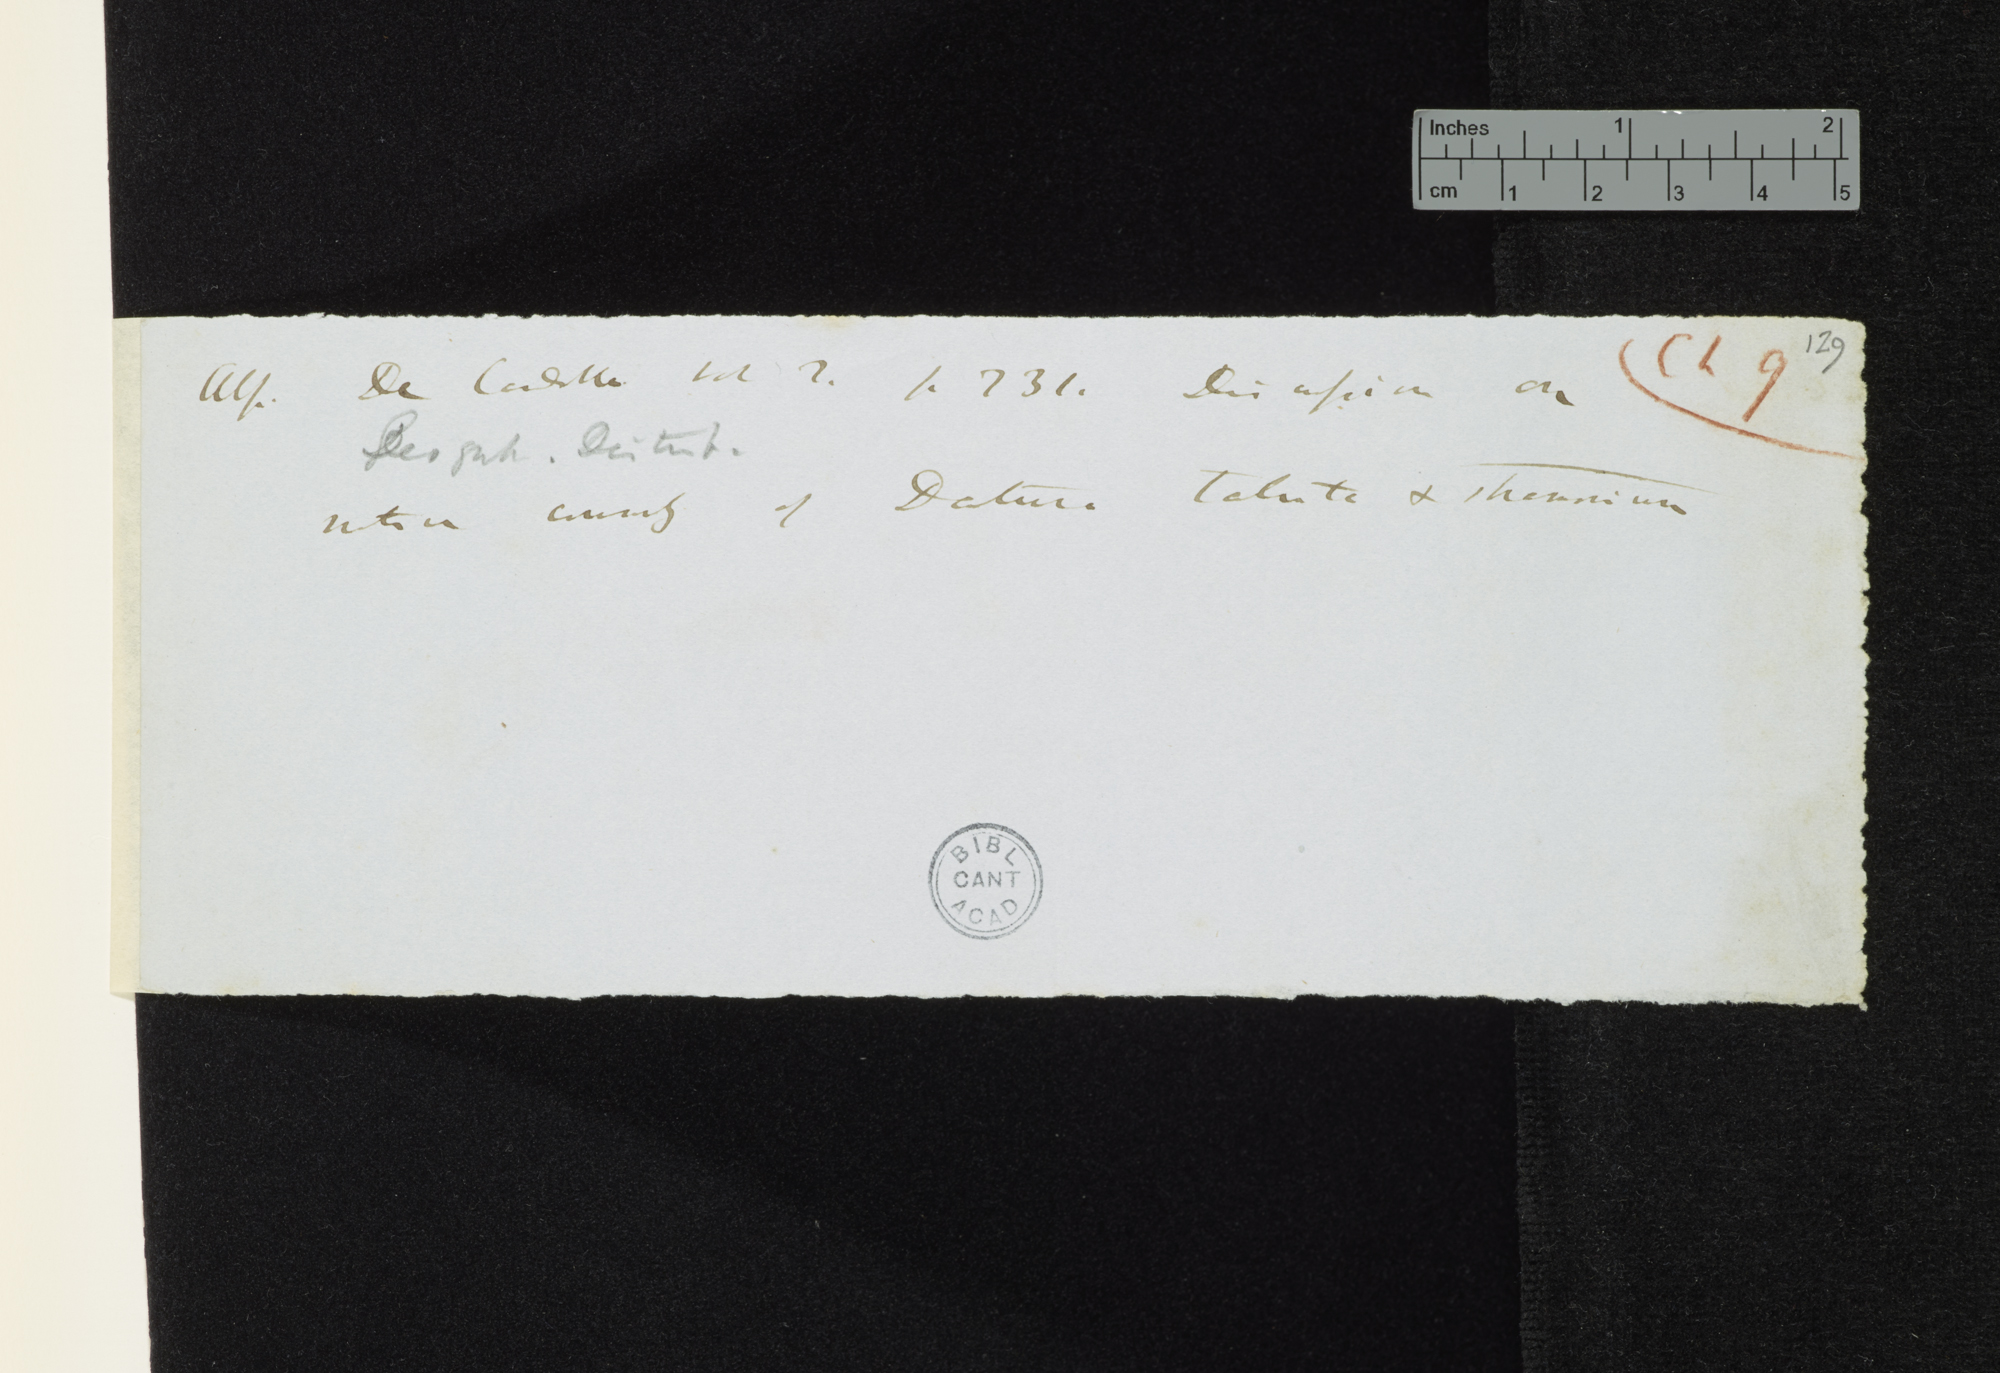 Inches 1 2
cm 1 2 3 4 5
Ch 9 129
Alp. De Candolle vol 2. p 731. Discussion on
Geograph. Distrib.
native country of Datura Tatula & Stramonium
BIBL
CANT
ACAD